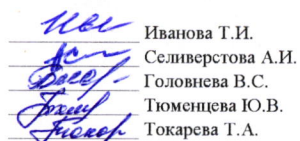 Иванова Т.И.
Селиверстова А.И.
Головнева В.С.
Тюменцева Ю.В.
Токарева Т.А.